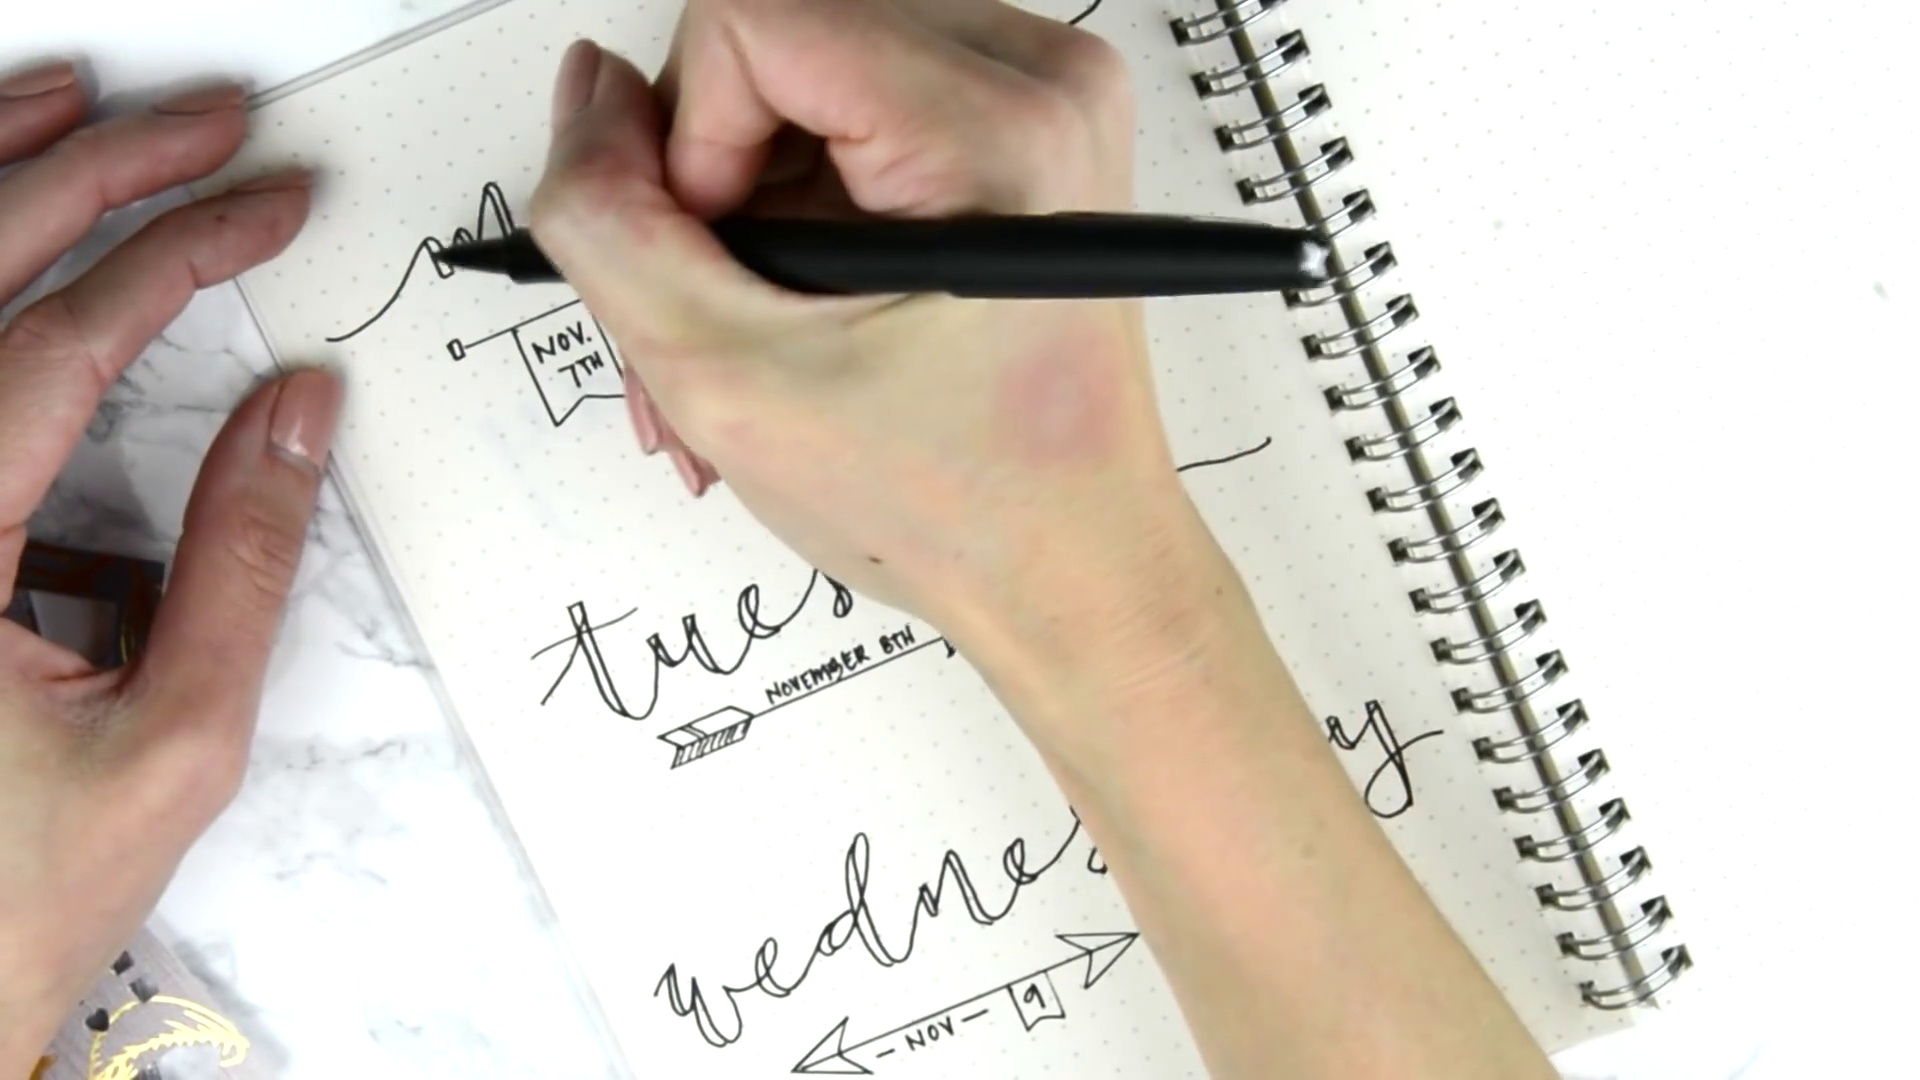 NOV.
7TH
tues
NOVEMBER 8TH
wednes y
- NOV - 9